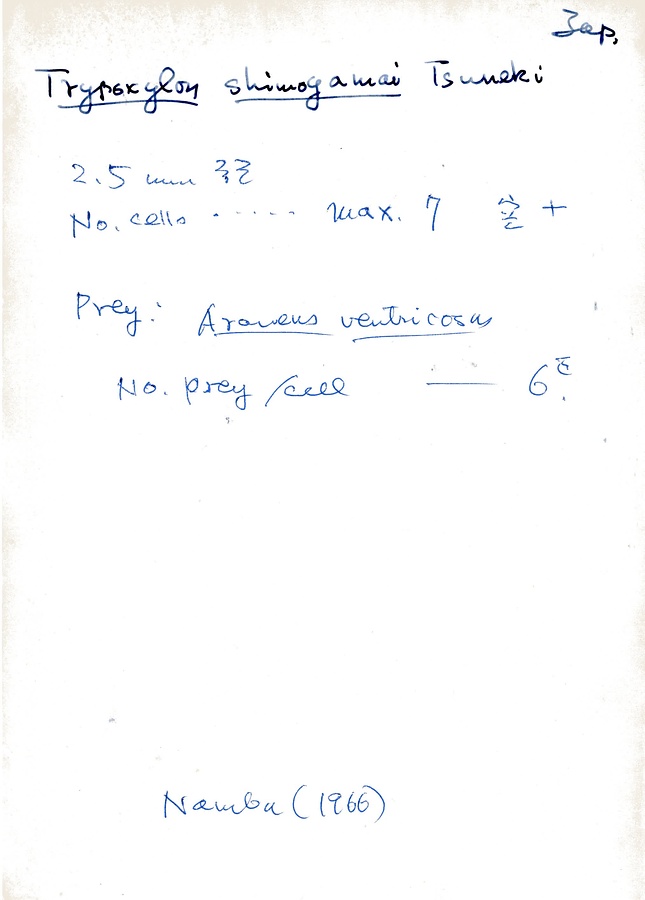 Jap.
Trypoxylon shimogamai Tsuneki
2.5 mm
No. cells ..... max. 7 +
Prey: Araneus ventricosus
No. prey /cell — 6
Namba (1966)